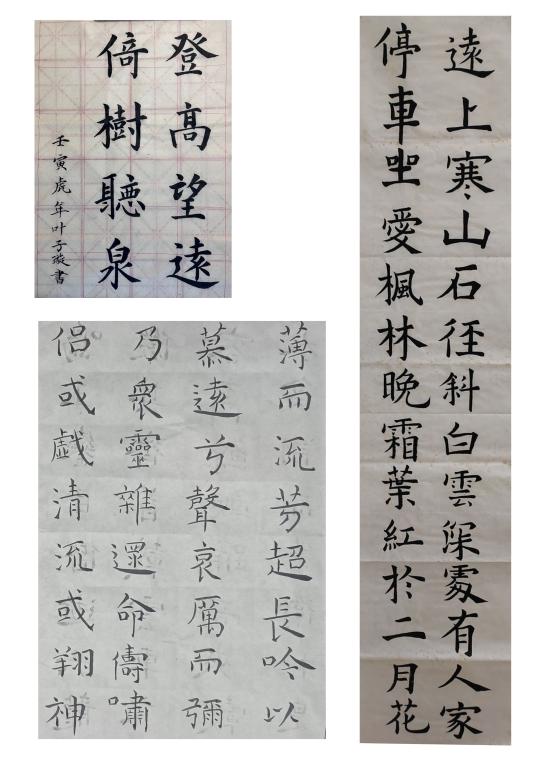 登高望遠
倚樹聽泉
壬寅虎年叶子璇書
遠上寒山石徑斜白雲深處有人家
停車坐愛楓林晚霜葉紅於二月花
薄而流芳超長吟以
慕遠兮聲哀厲而彌
乃眾靈雜遝命儔嘯
侶或戲清流或翔神